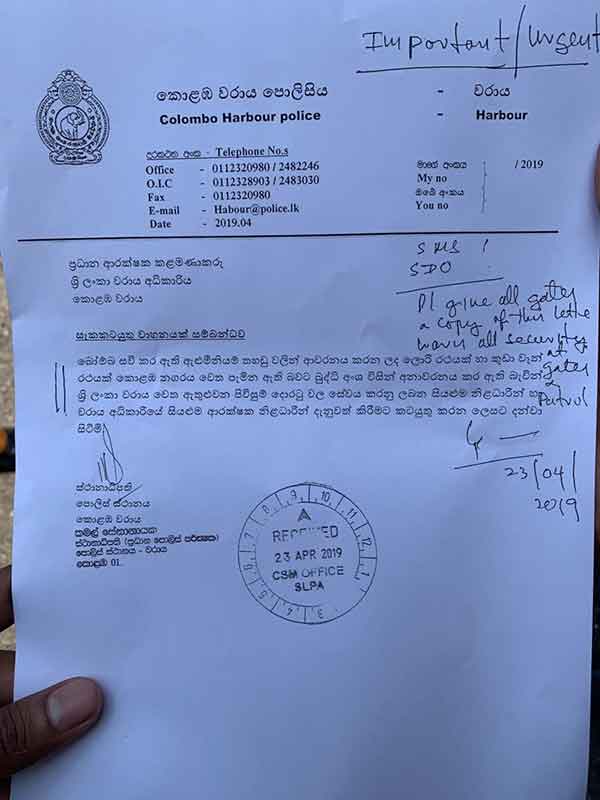 Important/Urgent
කොළඹ වරාය පොලිසිය - වරාය
Colombo Harbour police - Harbour
දුරකථන අංක - Telephone No.s
Office - 0112320980 / 2482246
O.I.C - 0112328903 / 2483030
Fax - 0112320980
E-mail - Habour@police.lk
Date - 2019.04
මාගේ අංකය / 2019
My no
ඔබේ අංකය
You no
ප්‍රධාන ආරක්ෂක කළමණාකරු
ශ්‍රී ලංකා වරාය අධිකාරිය
කොළඹ වරාය
SMS /
SDO
Pl give all gates
a copy of this letter
සැකකටයුතු වාහනයක් සම්බන්ධව
all security
at
gates
&
patrol
බෝම්බ සවි කර ඇති ඇළුමිනියම් තහඩු වලින් ආවරනය කරන ලද ලොරි රථයක් හා කුඩා වෑන්
රථයක් කොළඹ නගරය වෙත පැමින ඇති බවට බුද්ධි අංශ විසින් අනාවරනය කර ඇති බැවින්
ශ්‍රී ලංකා වරාය වෙත ඇතුළුවන පිවිසුම් දොරටු වල සේවය කරනු ලබන සියළුම නිළධාරීන් හා
වරාය අධිකාරියේ සියළුම ආරක්ෂක නිළධාරීන් දැනුවත් කිරීමට කටයුතු කරන ලෙසට දන්වා
සිටිමි.
23/04/
2019
ස්ථානාධිපති
පොලිස් ස්ථානය
කොළඹ වරාය
කමල් සේනානායක
ස්ථානාධිපති (ප්‍රධාන පොලිස් පරීක්ෂක)
පොලිස් ස්ථානය - වරාය
කොළඹ 01.
RECEIVED
23 APR 2019
CSM OFFICE
SLPA